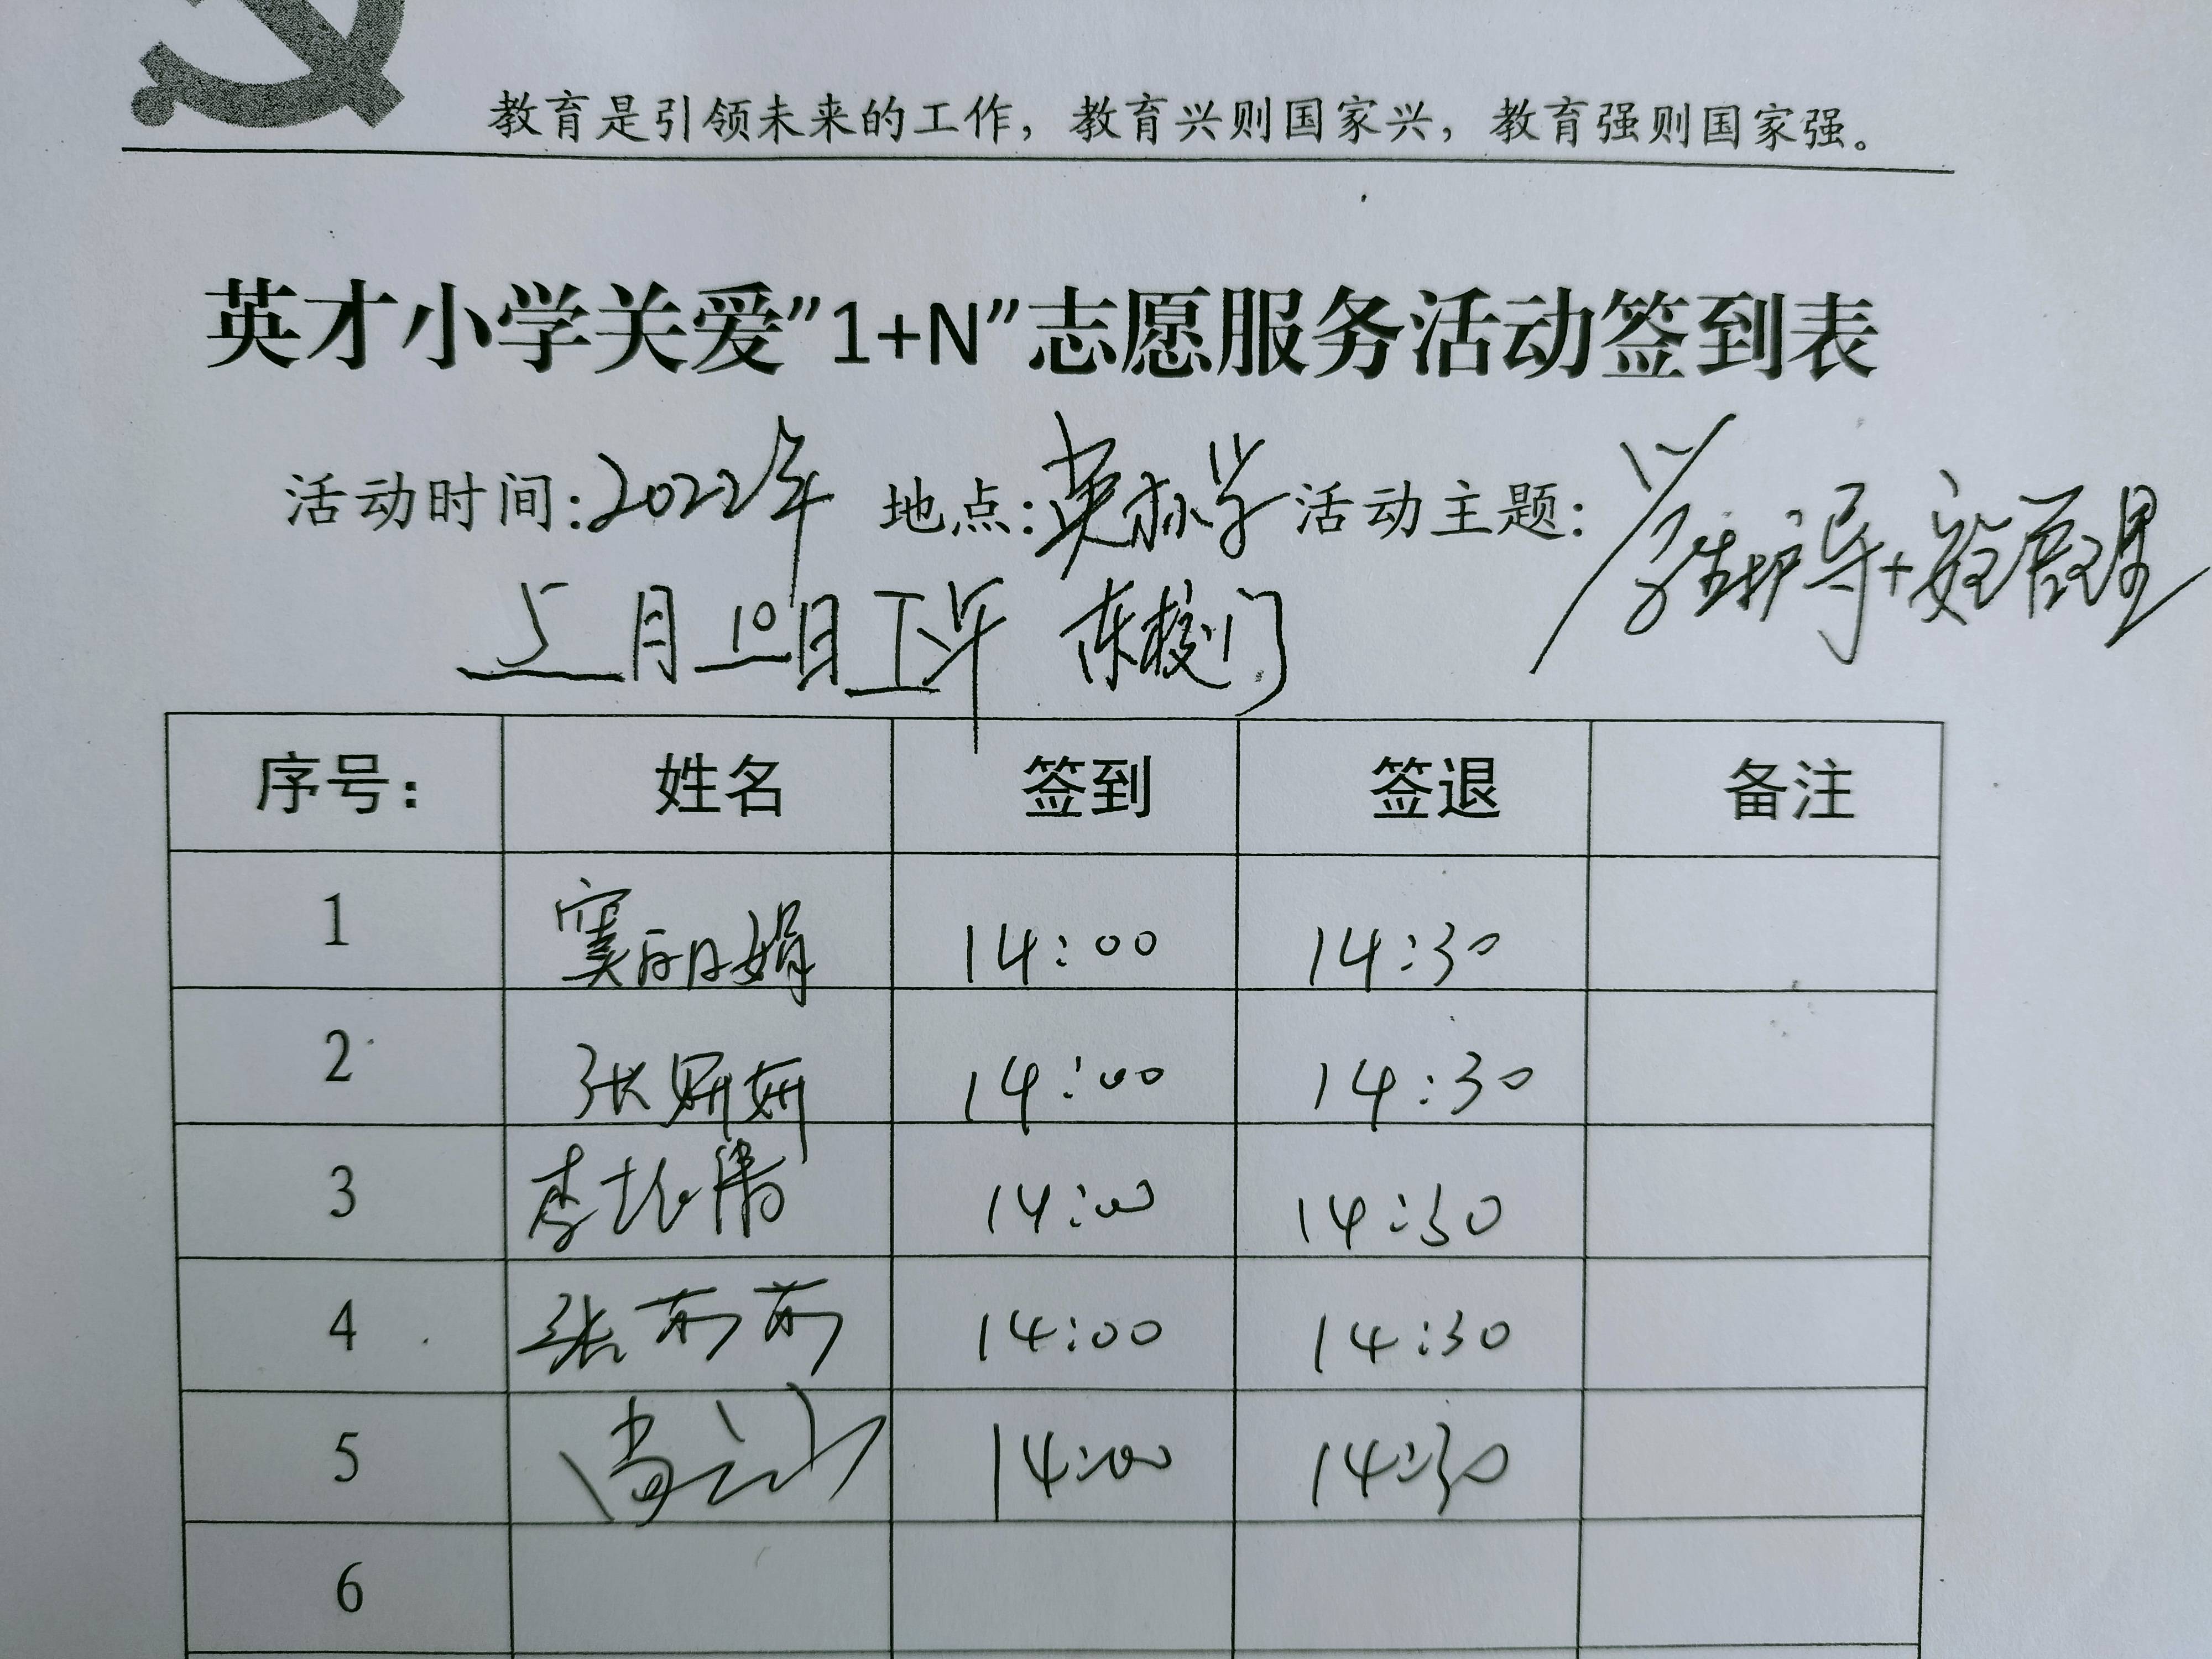 教育是引领未来的工作，教育兴则国家兴，教育强则国家强。
英才小学关爱”1+N”志愿服务活动签到表
活动时间：2022年 地点：英才小学 活动主题：学生护导+安全管理
5月10日下午 东校门
序号： 姓名 签到 签退 备注
1 窦丽娟 14:00 14:30
2 张妍妍 14:00 14:30
3 李 14:00 14:30
4 张莉莉 14:00 14:30
5 14:00 14:30
6